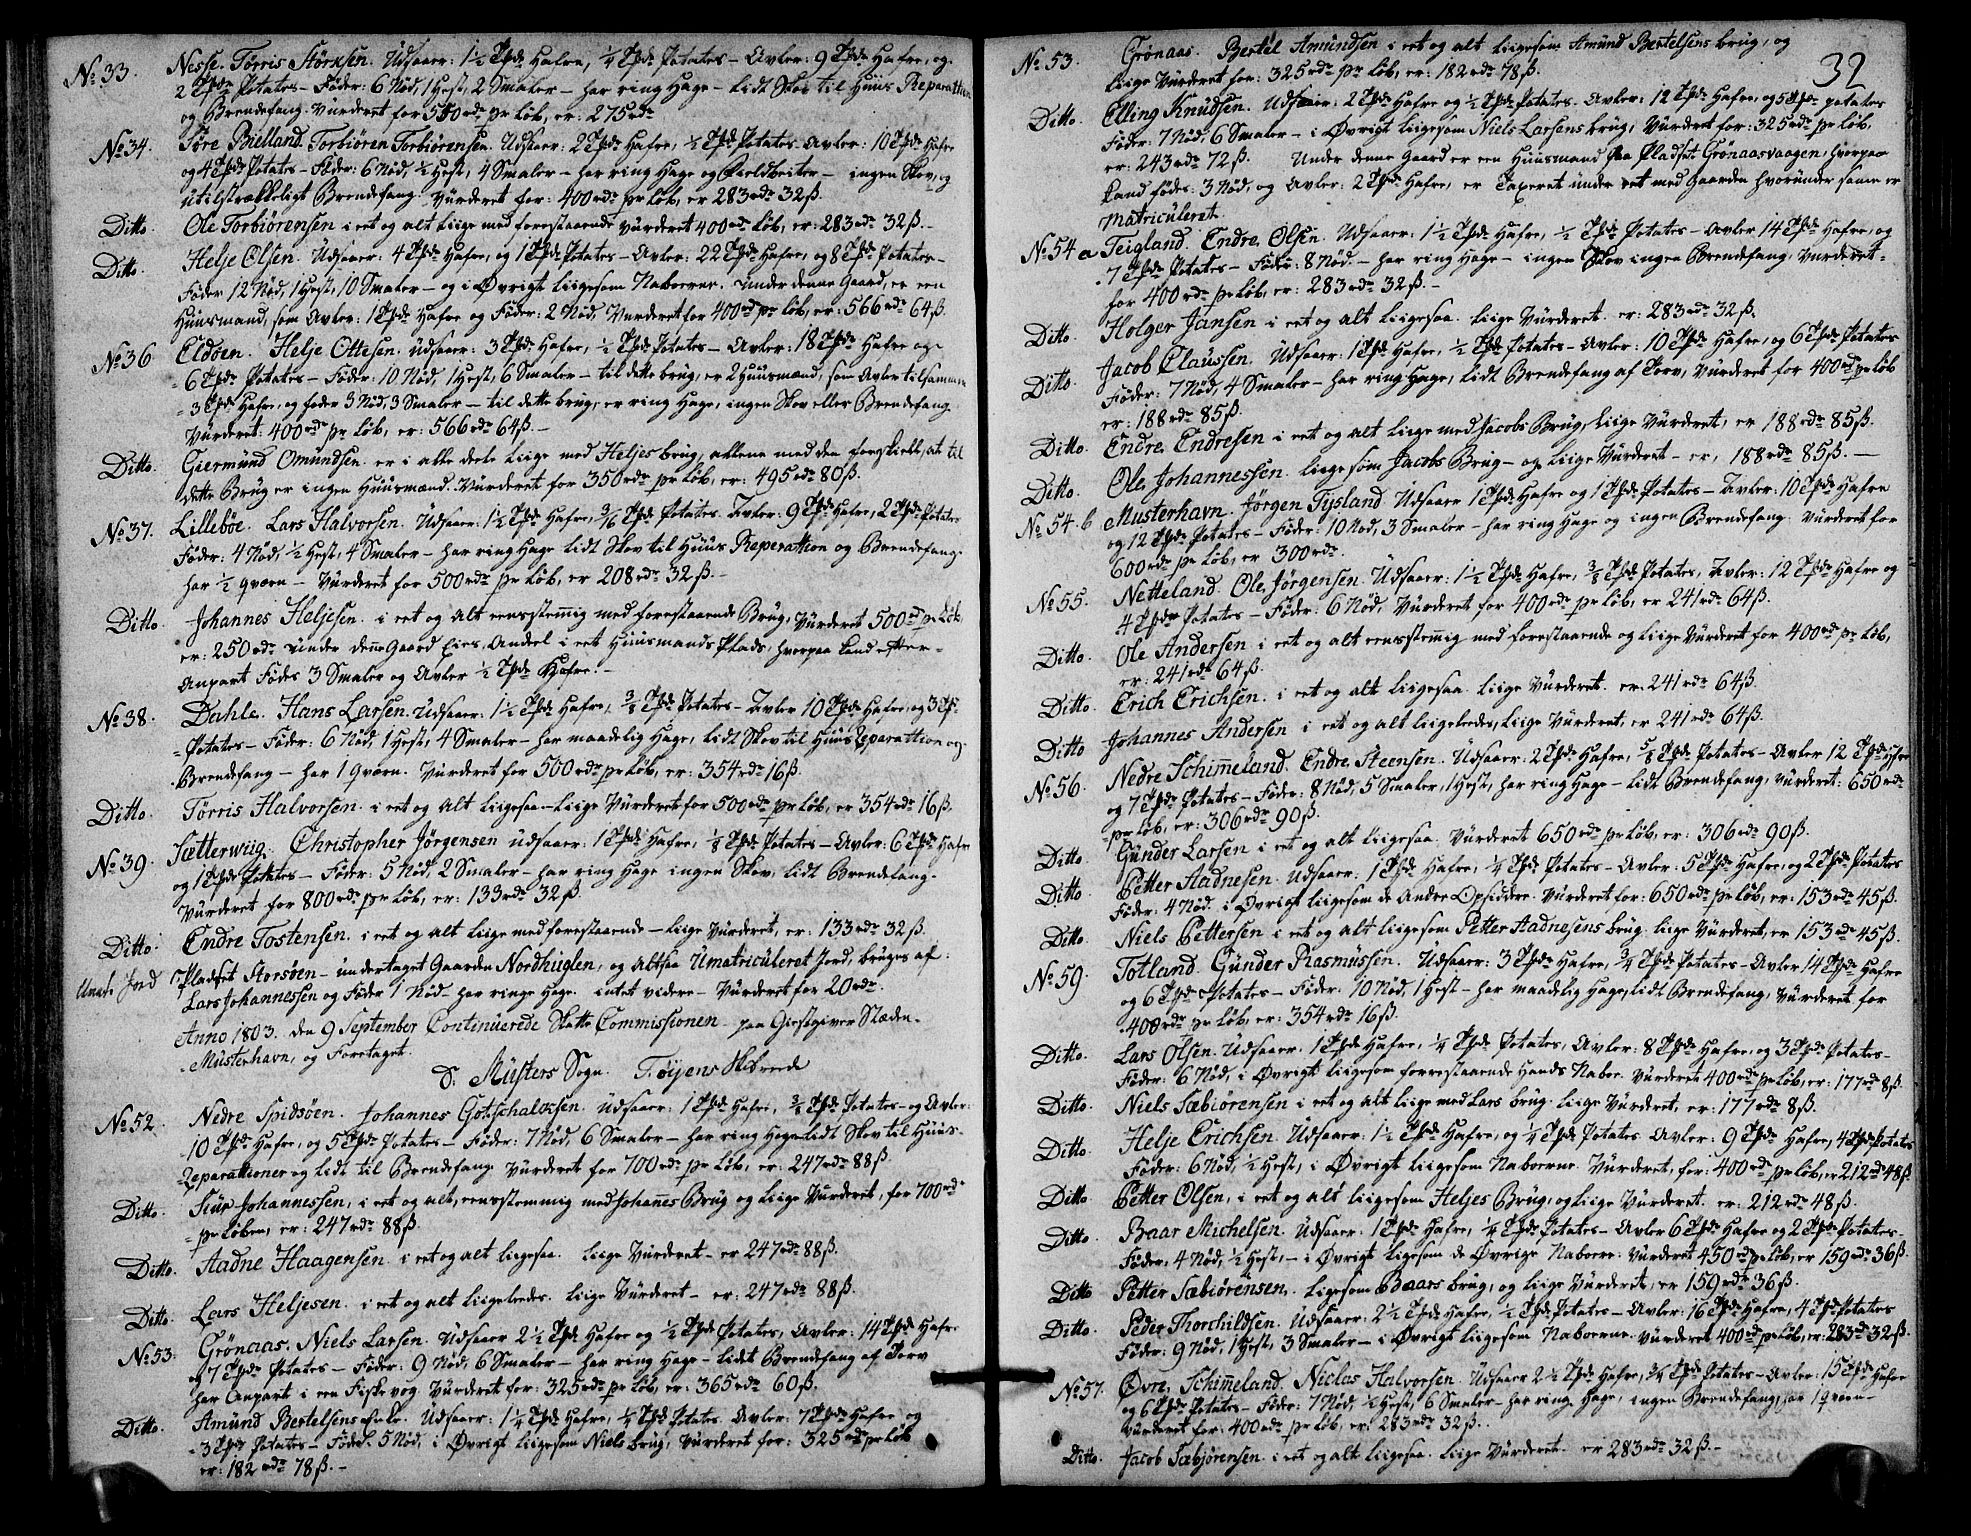 No 33. Nesse. Tørris Størksen. Udsaaer: 1½ Tønde Hafre, ¼ Tønde Potates – Avler: 9 Tønde Hafre, og
2 Tønde Potates – Føder: 6 Nød, 1 Hest, 2 Smaler – har ring Hage – lidt Skov til Huus Reparation
og Brendefang. Vurderet for 550 rdr pr Løb, er: 275 rdr
No 34. Tøre Bielland. Torbiøren Torbiørensen. Udsaaer: 2 Tønde Hafre, ½ Tønde Potates – Avler: 10 Tønde Hafre
og 4 Tønde Potates – Føder: 6 Nød, ½ Hest, 4 Smaler – har ring Hage og Fieldbeiter – ingen Skov, og
utilstrækkeligt Brendefang. Vurderet for: 400 rdr pr Løb, er 283 rdr 32 ß.
Ditto. Ole Torbiørensen i eet og alt liige med forestaaende vurderet 400 rdr Løb, er: 283 rdr 32 ß. –
Ditto. Helje Olsen. Udsaaer: 4 Tønde Hafre, og 1 Tønde Potates – Avler: 22 Tønde Hafre, og 8 Tønde Potates –
Føder 12 Nød, 1 Hest, 10 Smaler – og i Øvrigt liigesom Naboerne. under denne Gaard, er een
Huusmand, som Avler: 1 Tønde Hafre og Føder: 2 Nød, Vurderet for 400 rdr pr Løb, er: 566 rdr 64 ß.
No 36 Eldøen. Helje Ottesen. Udsaaer: 3 Tønde Hafre, ½ Tønde Potates – Avler: 18 Tønde Hafre og
6 Tønde Potates – Føder: 10 Nød, 1 Hest, 6 Smaler – til dette brug, er 2 Huusmænd, som Avler tilsammen
3 Tønde Hafre, og føder 3 Nød, 3 Smaler – til dette brug, er ring Hage, ingen Skov eller Brendefang.
Vurderet: 400 rdr pr Løb, er: 566 rdr 64 ß. –
Ditto. Giermund Omundsen. er i alle deele liige med Heljes brug, allene med den forskiell, at til
dette Brug er ingen Huusmænd. Vurderet for 350 rdr pr Løb, er: 495 rdr 80 ß.
No 37. Lillebøe. Lars Halvorsen. Udsaaer: 1½ Tønde Hafre, 3/16 Tønde Potates. Avler: 9 Tønde Hafre, 2 Tønde Potates
Føder: 4 Nød, ½ Hest, 4 Smaler – har ring Hage lidt Skov til Huus Reparation og Brendefang.
har ½ qværn – Vurderet for 500 rdr pr Løb, er 208 rdr 32 ß. –
Ditto. Johannes Heljesen. i eet og alt eensstemig med forestaaende Brug, Vurderet 500 rdr pr Løb,
er: 250 rdr under denne Gaard Eies Andel i eet Huusmands Plads, hvorpaa kand efter
Anpart Fødes 3 Smaler og Avler ½ Tønde Hafre. –
No 38. Dahle. Hans Larsen. Udsaaer: 1½ Tønde Hafre, 3/8 Tønde Potates – Avler 10 Tønde Hafre, og 3 Tønde
Potates – Føder: 6 Nød, 1 Hest, 4 Smaler – har maadelig Hage, lidt Skov til Huus Reparattion og
Brendefang – har 1 Qværn. Vurderet for 500 rdr pr Løb, er: 354 rdr 16 ß.
Ditto. Tørris Halvorsen. i eet og alt liigesaa – Liige Vurderet for 500 rdr pr Løb, er 354 rdr 16 ß.
No 39. Sætterwiig. Christopher Jørgensen udsaaer: 1 Tønde Hafre, 1/8 Tønde Potates – Avler: 6 Tønde Hafre
og 1 Tønde Potates – Føder: 5 Nød, 2 Smaler – har ring Hage ingen Skov, lidt Brendefang.
Vurderet for 800 rdr pr Løb, er: 133 rdr 32 ß.
Ditto. Endre Tostensen. i eet og alt liige med forestaaende – liige Vurderet, er: 133 rdr 32 ß.
Umatr. Jord Pladset Storsøen – undertaget Gaarden Nordhuglen, og altsaa Umatriculeret Jord, bruges af
Lars Johannessen og Føder 1 Nød – har ringe Hage. intet videre – Vurderet for 20 rdr.
Anno 1803. den 9 September Continuerede Skatte Commissionen paa Giestgiver Stæden
Musterhavn, og Foretaget.
D: Müsters Sogn. Føyens Skibrede
No 52. Nedre Spidsøen. Johannes Gotschalcksen. Udsaaer: 1 Tønde Hafre, 3/8 Tønde Potates – og Avler:
10 Tønde Hafre, og 5 Tønde Potates – Føder: 7 Nød, 6 Smaler – har ring Hage lidt Skov til Huus
Reparattioner og lidt til Brendefang. Vurderet for 700 rdr pr Løb, er: 247 rdr 88 ß.
Ditto. Siur Johannessen, i eet og alt, eensstemmig med Johannes Brug og liige Vurderet, for 700 rdr
pr Løben, er: 247 rdr 88 ß.
Ditto. Aadne Haagensen. i eet og alt liigesaa. Liige Vurderet – er 247 rdr 88 ß.
Ditto. Lars Heljesen. i eet og alt liigeledes. liige Vurderet – er: 247 rdr 88 ß.
No 53. Grönaas. Niels Larsen. Udsaaer 2½ Tønde Hafre og ½ Tønde Potates, Avler: 14 Tønde Hafre
og 7 Tønde Potates – Føder: 9 Nød, 6 Smaler – har ring Hage – lidt Brendefang af Torv
har Anpart i een Fiskevog. Vurderet for: 325 rdr pr Løb, er: 365 rdr 60 ß.
Ditto. Amund Bertelsens Enke. Udsaaer: 1¼ Tønde Hafre, ¼ Tønde Potates. Avler: 7 Tønde Hafre og
3 Tønde Potates – Føder: 5 Nød, i Øvrigt liigesom Niels brug, Vurderet for: 325 rdr pr Løb
er: 182 rdr 78 ß. –
32
No 53. Grönaas. Bertel Amundsen i eet og alt liigesom Amund Bertelsens brug, og
liige Vurderet for: 325 rdr pr Løb, er: 182 rdr 78 ß.
Ditto. Elling Knudsen. Udsaaer: 2 Tønde Hafre og ½ Tønde Potates. Avler: 12 Tønde Hafre, og 5 Tønde potates
Føder: 7 Nød, 6 Smaler – i Øvrigt liigesom Niels Larsens brug, Vurderet for: 325 rdr pr Løb,
er: 243 rdr 72 ß. Under denne Gaard er een Huusmand paa Pladset Grönaasvaagen, hvorpaa
kand fødes: 3 Nød, og Avler: 2 Tønde Hafre, er Taxeret under eet med Gaarden hvorunder samme er
Matriculeret.
No 54 a Teigland. Endre Olsen. Udsaaer: 1½ Tønde Hafre, ½ Tønde Potates – Avler 14 Tønde Hafre, og
7 Tønde Potates – Føder: 8 Nød – har ring Hage – ingen Skov ingen Brendefang, Vurderet
for 400 rdr pr Løb, er: 283 rdr 32 ß. –
Ditto. Holger Jansen i eet og alt liigesaa. liige Vurderet. er: 283 rdr 32 ß.
Ditto. Jacob Claussen. Udsaaer: 1 Tønde Hafre, ½ Tønde Potates – Avler: 10 Tønde Hafre, og 6 Tønde Potates
Føder: 7 Nød, 4 Smaler – har ring Hage, lidt Brendefang af Torv, Vurderet for 400 rdr pr Løb
er: 188 rdr 85 ß.
Ditto. Endre Endresen i eet og alt liige med Jacobs Brug, liige Vurderet, er 188 rdr 85 ß.
Ditto. Ole Johannessen. liigesom Jacobs Brug – og liige Vurderet – er, 188 rdr 85 ß. –
No 54. b Musterhavn. Jørgen Tysland Udsaaer 1 Tønde Hafre og 1 Tønde Potates – Avler: 10 Tønde Hafre
og 12 Tønde Potates – Føder: 10 Nød, 3 Smaler – har ring Hage og ingen Brendefang. Vurderet for
600 rdr pr Løb, er 300 rdr.
No 55. Netteland. Ole Jørgensen. Udsaaer: 1½ Tønde Hafre, 3/8 Tønde Potates, Avler: 12 Tønde Hafre og
4 Tønde Potates – Føder: 6 Nød, Vurderet for 400 rdr pr Løb, er 241 rdr 64 ß.
Ditto. Ole Andersen i eet og alt eensstemig med forestaaende og liige Vurderet for 400 rdr pr Løb,
er: 241 rdr 64 ß.
Ditto. Erich Erichsen. i eet og alt liigesaa. liige Vurderet. er: 241 rdr 64 ß.
Ditto Johannes Andersen i eet og alt liigeledes, liige Vurderet, er 241 rdr 64 ß.
No 56. Nedre Schimeland. Endre Steensen. Udsaaer: 2 Tønde Hafre, 5/8 Tønde Potates – Avler 12 Tønde Hafre
og 7 Tønde Potates – Føder: 8 Nød, 5 Smaler, 1 Hest, har ring Hage – lidt Brendefang, Vurderet: 650 rdr
pr Løb, er: 306 rdr 90 ß.
Ditto. Gunder Larsen i eet og alt liigesaa. Vurderet 650 rdr pr Løb, er: 306 rdr 90 ß.
Ditto Petter Aadnesen. Udsaaer: 1 Tønde Hafre, ¼ Tønde Potates – Avler: 5 Tønde Hafre, og 2 Tønde Potates
Føder: 4 Nød. i Øvrigt liigesom de Andre Opsiddere. Vurderet for: 650 rdr pr Løb, er: 153 rdr 45 ß.
Ditto. Niels Pettersen i eet og alt liigesom Petter Aadnesens brug. liige Vurderet, er 153 rdr 45 ß.
No 59. Totland. Gunder Rasmussen. Udsaaer: 3 Tønde Hafre, ¾ Tønde Potates – Avler 14 Tønde Hafre
og 6 Tønde Potates – Føder: 10 Nød, 1 Hest – har maadlig Hage, lidt Brendefang, Vurderet for
400 rdr pr Løb, er: 354 rdr 16 ß.
Ditto. Lars Olsen. Udsaaer: 1 Tønde Hafre, ¼ Tønde Potates, Avler: 8 Tønde Hafre, og 3 Tønde Potates –
Føder: 6 Nød, i Øvrigt liigesom forrestaaende Hands Naboe. Vurderet 400 rdr pr Løb, er: 177 rdr 8 ß.
Ditto. Niels Sæbiørensen i eet og alt liige med Lars brug. liige Vurderet, er: 177 rdr 8 ß.
Ditto. Helje Erichsen. Udsaaer: 1½ Tønde Hafre, og ¼ Tønde Potates Avler: 9 Tønde Hafre, 4 Tønde Potates
Føder: 6 Nød, ½ Hest, i Øvrigt liigesom Naboerne. Vurderet, for: 400 rdr pr Løb, er 212 rdr 48 ß.
Ditto Petter Olsen, i eet og alt liigesom Heljes Brug, og liige Vurderet. er: 212 rdr 48 ß.
Ditto. Baar Michelsen. Udsaaer: 1 Tønde Hafre, ¼ Tønde Potates – Avler 6 Tønde Hafre og 2 Tønde Potates –
Føder, 4 Nød, ½ Hest, – i Øvrigt liigesom de Øvrige Naboerne. Vurderet 450 rdr pr Løb, er 159 rdr 36 ß.
Ditto Petter Sæbiørensen, liigesom Baars brug, og liige Vurderet, er 159 rdr 36 ß.
Ditto. Peder Thorchildsen. Udsaaer: 2½ Tønde Hafre, ½ Tønde Potates – Avler: 16 Tønde Hafre, 4 Tønde Potates
Føder: 9 Nød, 1 Hest, 3 Smaler – i Øvrigt liigesom Naboerne. Vurderet 400 rdr pr Løb, er: 283 rdr 32 ß.
No 57. Øvre Schimeland. Niclas Halvorsen. Udsaaer 2½ Tønde Hafre, ¾ Tønde Potates – Avler: 15 Tønde Hafre
og 6 Tønde Potates – Føder: 7 Nød, ½ Hest, 6 Smaler – har ring Hage, ingen Brendefang, har 1 qværn –
Vurderet for: 400 rdr pr Løb, er: 283 rdr 32 ß.
Ditto. Jacob Sæbjørensen. i eet og alt liigesaa. liige Vurderet. er 283 rdr 32 ß. –